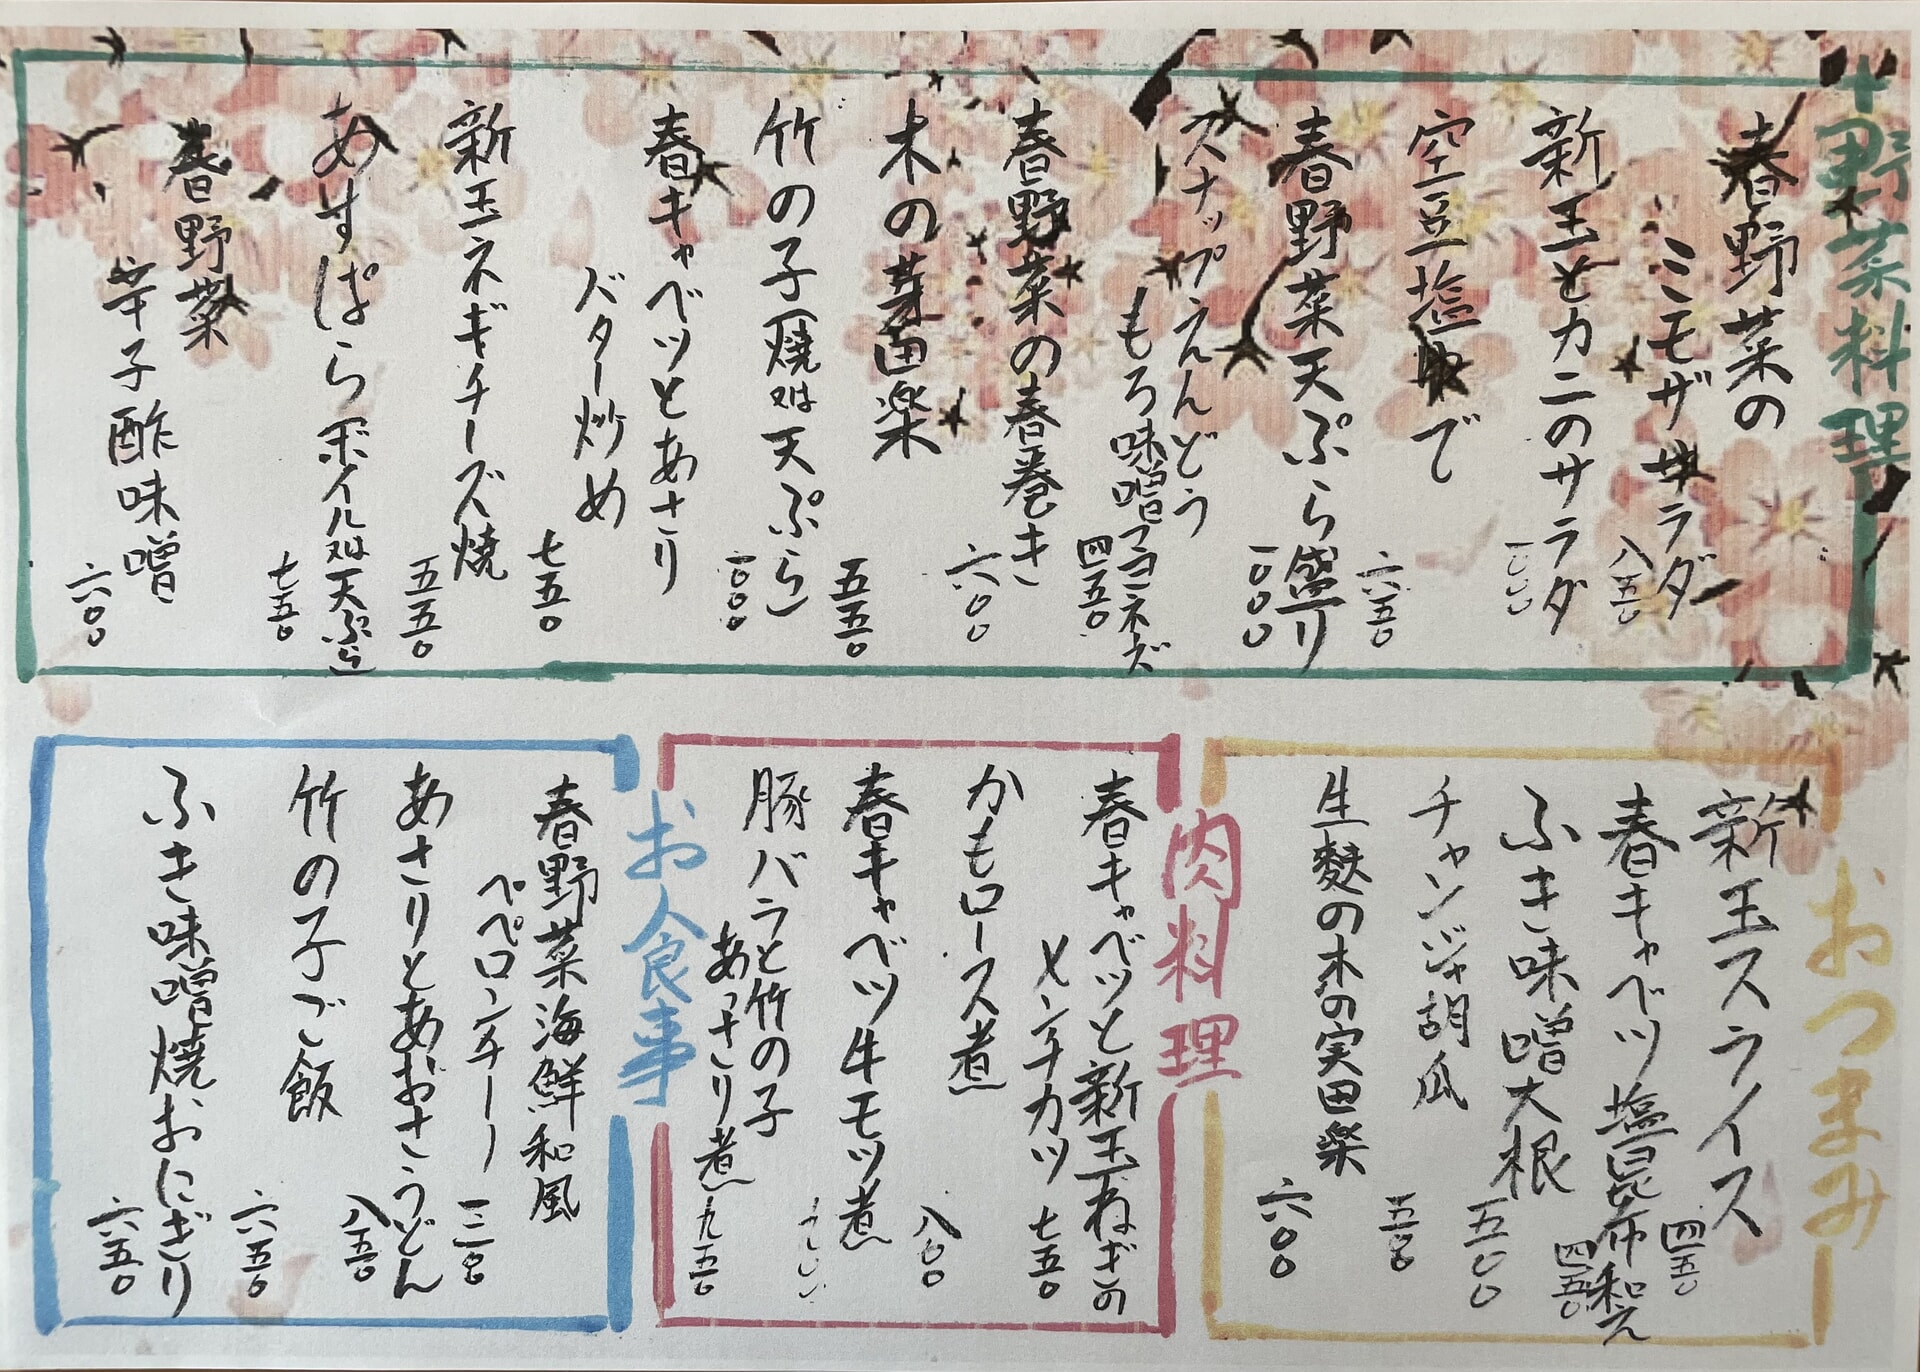 野菜料理
春野菜の
ミモザサラダ
八五〇
新玉とカニのサラダ
一〇〇〇
空豆塩ゆで
六五〇
春野菜天ぷら盛り
一〇〇〇
スナップえんどう
もろ味噌マヨネーズ
四五〇
春野菜の春巻き
六〇〇
木の芽田楽
五五〇
竹の子(焼又は天ぷら)
一〇〇〇
春キャベツとあさり
バター炒め
七五〇
新玉ネギチーズ焼
五五〇
あすぱら(ボイル又は天ぷら)
七五〇
春野菜
辛子酢味噌
六〇〇
おつまみ
新玉スライス
四五〇
春キャベツ塩昆布和え
四五〇
ふき味噌大根
五〇〇
チャンジャ胡瓜
五〇〇
生麩の木の実田楽
六〇〇
肉料理
春キャベツと新玉ねぎの
メンチカツ
七五〇
かもロース煮
八〇〇
春キャベツ牛モツ煮
豚バラと竹の子
あっさり煮
九五〇
お食事
春野菜海鮮和風
ペペロンチーノ
あさりとあおさうどん
八五〇
竹の子ご飯
六五〇
ふき味噌焼おにぎり
六五〇